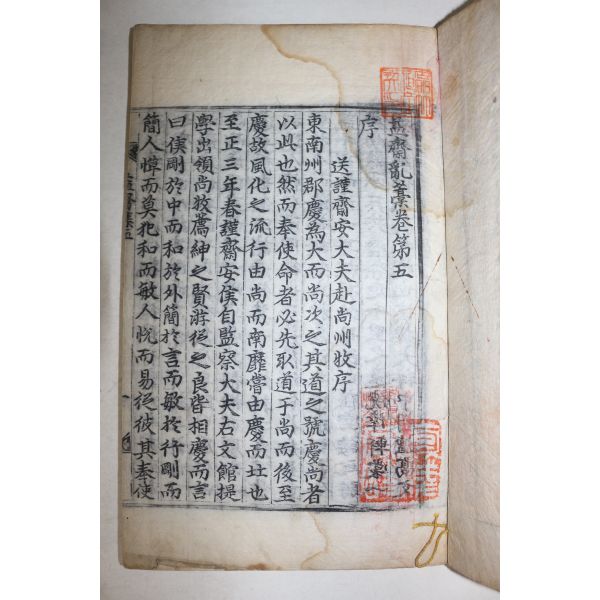 益齋亂藁卷第五
序
送謹齋安大夫赴尚州牧序
東南州郡慶為大而尚次之其道之號慶尚者
以此也然而奉使命者必先取道于尚而後至
慶故風化之流行由尚而南靡嘗由慶而北也
至正三年春謹齋安侯自監察大夫右文館提
學出領尚牧薦紳之賢游從之良皆相慶而言
曰侯剛於中而和於外簡於言而敏於行剛而
簡人憚而莫犯和而敏人悅而易從彼其奉使